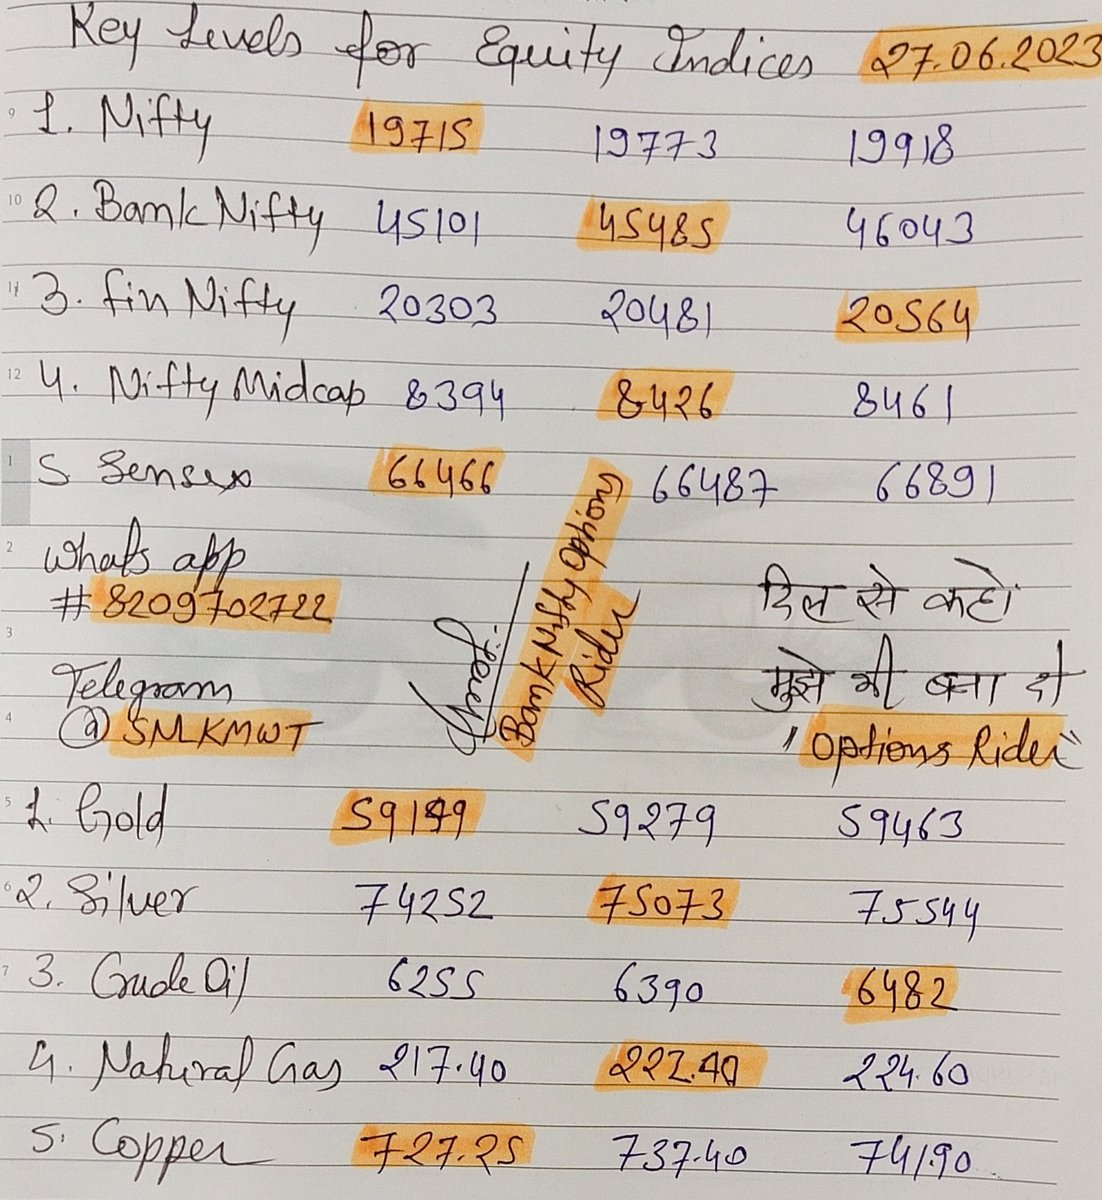 Key Levels for Equity Indices 27.06.2023
9
1. Nifty 19715 19773 19918
10
2. Bank Nifty 45101 45485 46043
11
3. fin Nifty 20303 20481 20564
12
4. Nifty Midcap 8394 8426 8461
1
5 Sensex 66466 66487 66891
2
Whats app
# 8209702722
3
Telegram
4
@SMKMWT
Bank Nifty Options
Rider
दिल से कहो
मुझे भी बना दो
"Options Rider"
5
1. Gold 59199 59279 59463
6
2. Silver 74252 75073 75544
7
3. Crude Oil 6255 6390 6482
4. Natural Gas 217.40 222.40 224.60
5. Copper 727.25 737.40 741.90